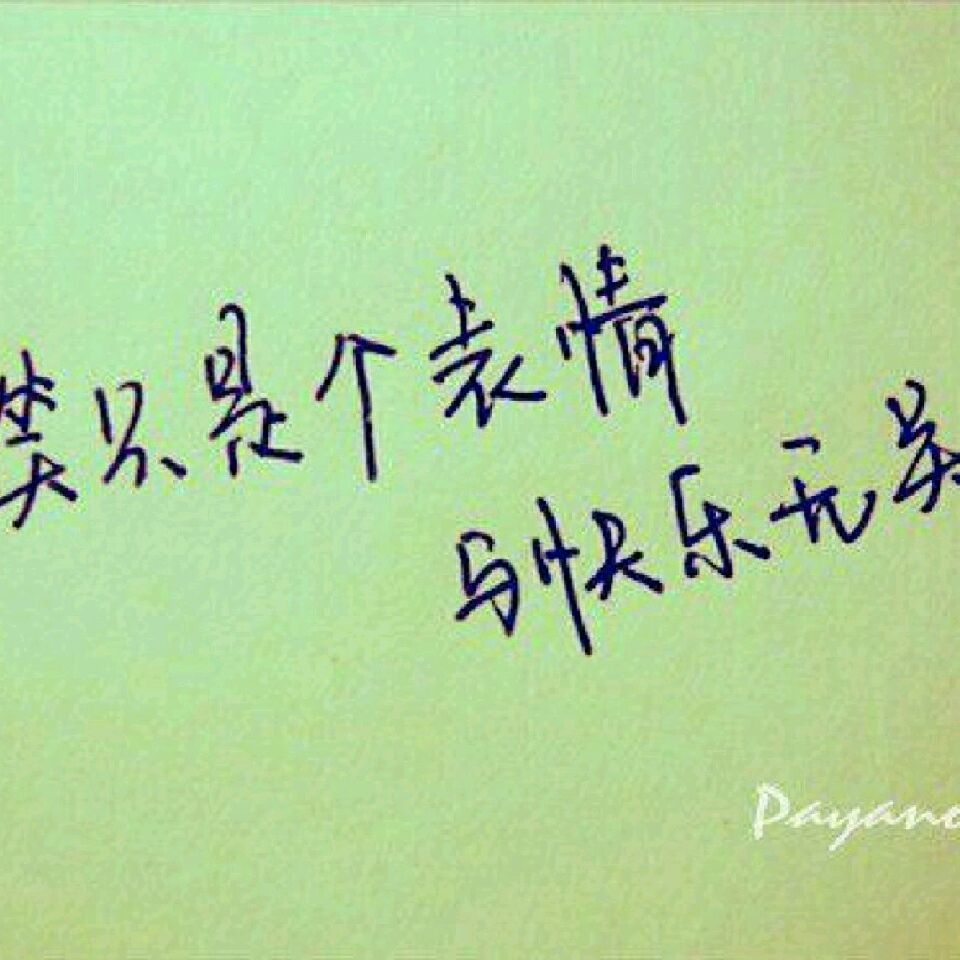 笑只是个表情
与快乐无关
Payano